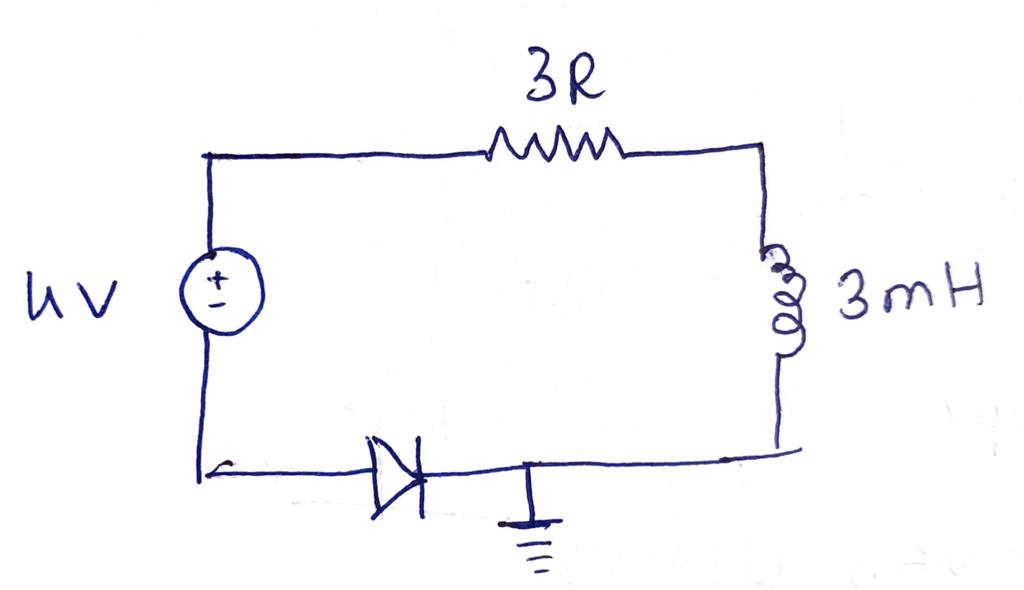 3R
4V
+
-
3mH